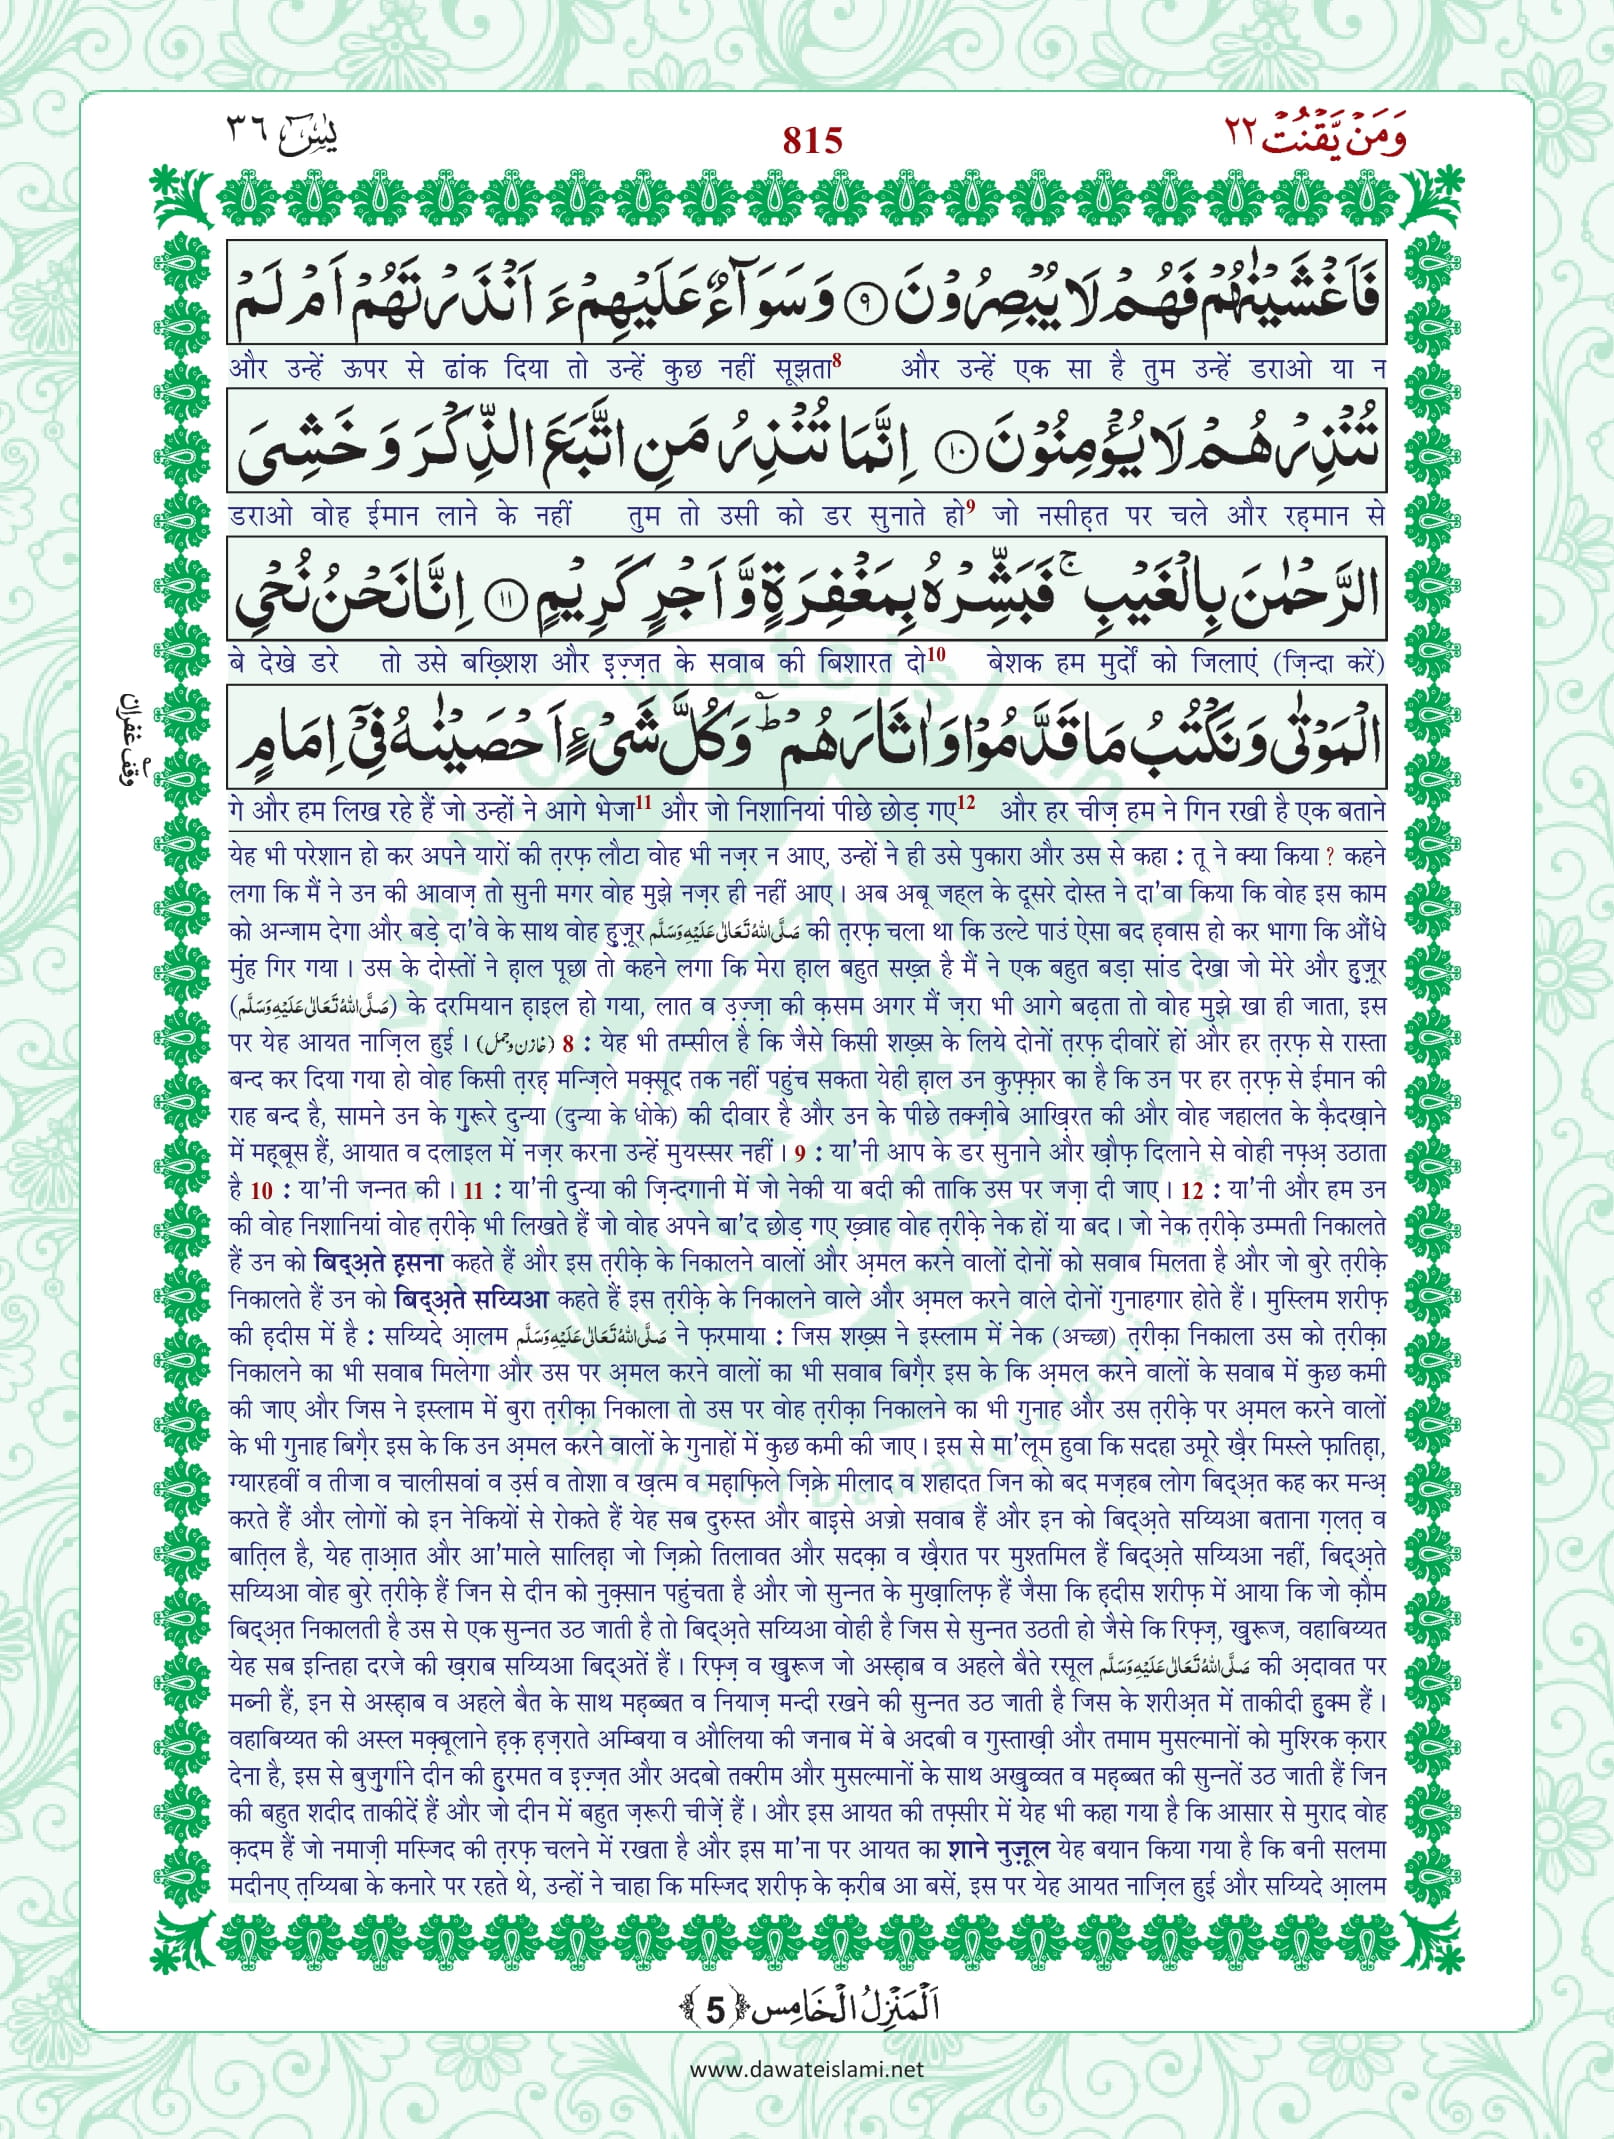 وَمَنْ يَّقْنُتْ ٢٢
815
يٰسٓ ٣٦
فَاَغْشَيْنٰهُمْ فَهُمْ لَا يُبْصِرُوْنَ ﴿٩﴾ وَسَوَآءٌ عَلَيْهِمْ ءَاَنْذَرْتَهُمْ اَمْ لَمْ
और उन्हें ऊपर से ढांक दिया तो उन्हें कुछ नहीं सूझता8 और उन्हें एक सा है तुम उन्हें डराओ या न
تُنْذِرْهُمْ لَا يُؤْمِنُوْنَ ﴿١٠﴾ اِنَّمَا تُنْذِرُ مَنِ اتَّبَعَ الذِّكْرَ وَخَشِیَ
डराओ वोह ईमान लाने के नहीं तुम तो उसी को डर सुनाते हो9 जो नसीह़त पर चले और रह़मान से
الرَّحْمٰنَ بِالْغَيْبِ ۚ فَبَشِّرْهُ بِمَغْفِرَةٍ وَّاَجْرٍ كَرِيْمٍ ﴿١١﴾ اِنَّا نَحْنُ نُحْیِ
बे देखे डरे तो उसे बख़्शिश और इ़ज़्ज़त के सवाब की बिशारत दो10 बेशक हम मुर्दों को जिलाएं (ज़िन्दा करें)
الْمَوْتٰى وَنَكْتُبُ مَا قَدَّمُوْا وَاٰثَارَهُمْ ؕ وَكُلَّ شَیْءٍ اَحْصَيْنٰهُ فِیْۤ اِمَامٍ
وقف غفران
गे और हम लिख रहे हैं जो उन्हों ने आगे भेजा11 और जो निशानियां पीछे छोड़ गए12 और हर चीज़ हम ने गिन रखी है एक बताने
येह भी परेशान हो कर अपने यारों की त़रफ़ लौटा वोह भी नज़र न आए, उन्हों ने ही उसे पुकारा और उस से कहा : तू ने क्या किया ? कहने
लगा कि मैं ने उन की आवाज़ तो सुनी मगर वोह मुझे नज़र ही नहीं आए। अब अबू जह्ल के दूसरे दोस्त ने दा'वा किया कि वोह इस काम
को अन्जाम देगा और बड़े दा'वे के साथ वोह हु़ज़ूर صَلَّى اللهُ تَعَالٰى عَلَيْهِ وَسَلَّم की त़रफ़ चला था कि उल्टे पाउं ऐसा बद ह़वास हो कर भागा कि औंधे
मुंह गिर गया। उस के दोस्तों ने ह़ाल पूछा तो कहने लगा कि मेरा ह़ाल बहुत सख़्त है मैं ने एक बहुत बड़ा सांड देखा जो मेरे और हु़ज़ूर
(صَلَّى اللهُ تَعَالٰى عَلَيْهِ وَسَلَّم) के दरमियान ह़ाइल हो गया, लात व उ़ज़्ज़ा की क़सम अगर मैं ज़रा भी आगे बढ़ता तो वोह मुझे खा ही जाता, इस
पर येह आयत नाज़िल हुई। (خازن و جمل) 8 : येह भी तम्सील है कि जैसे किसी शख़्स के लिये दोनों त़रफ़ दीवारें हों और हर त़रफ़ से रास्ता
बन्द कर दिया गया हो वोह किसी त़रह़ मन्ज़िले मक़्सूद तक नहीं पहुंच सकता येही ह़ाल उन कुफ़्फ़ार का है कि उन पर हर त़रफ़ से ईमान की
राह बन्द है, सामने उन के ग़ुरूरे दुन्या (दुन्या के धोके) की दीवार है और उन के पीछे तक्ज़ीबे आख़िरत की और वोह जहालत के क़ैदख़ाने
में मह़्बूस हैं, आयात व दलाइल में नज़र करना उन्हें मुयस्सर नहीं। 9 : या'नी आप के डर सुनाने और ख़ौफ़ दिलाने से वोही नफ़्अ़ उठाता
है 10 : या'नी जन्नत की। 11 : या'नी दुन्या की ज़िन्दगानी में जो नेकी या बदी की ताकि उस पर जज़ा दी जाए। 12 : या'नी और हम उन
की वोह निशानियां वोह त़रीक़े भी लिखते हैं जो वोह अपने बा'द छोड़ गए ख़्वाह वोह त़रीक़े नेक हों या बद। जो नेक त़रीक़े उम्मती निकालते
हैं उन को बिद्अ़ते ह़सना कहते हैं और इस त़रीक़े के निकालने वालों और अ़मल करने वालों दोनों को सवाब मिलता है और जो बुरे त़रीक़े
निकालते हैं उन को बिद्अ़ते सय्यिआ कहते हैं इस त़रीक़े के निकालने वाले और अ़मल करने वाले दोनों गुनाहगार होते हैं। मुस्लिम शरीफ़
की ह़दीस में है : सय्यिदे आ़लम صَلَّى اللهُ تَعَالٰى عَلَيْهِ وَسَلَّم ने फ़रमाया : जिस शख़्स ने इस्लाम में नेक (अच्छा) त़रीक़ा निकाला उस को त़रीक़ा
निकालने का भी सवाब मिलेगा और उस पर अ़मल करने वालों का भी सवाब बिग़ैर इस के कि अ़मल करने वालों के सवाब में कुछ कमी
की जाए और जिस ने इस्लाम में बुरा त़रीक़ा निकाला तो उस पर वोह त़रीक़ा निकालने का भी गुनाह और उस त़रीक़े पर अ़मल करने वालों
के भी गुनाह बिग़ैर इस के कि उन अ़मल करने वालों के गुनाहों में कुछ कमी की जाए। इस से मा'लूम हुवा कि सदहा उमूरे ख़ैर मिस्ले फ़ातिह़ा,
ग्यारहवीं व तीजा व चालीसवां व उ़र्स व तोशा व ख़त्म व महा़फ़िले ज़िक्रे मीलाद व शहादत जिन को बद मज़हब लोग बिद्अ़त कह कर मन्अ़
करते हैं और लोगों को इन नेकियों से रोकते हैं येह सब दुरुस्त और बाइसे अज्रो सवाब हैं और इन को बिद्अ़ते सय्यिआ बताना ग़लत़ व
बात़िल है, येह त़ाआ़त और आ'माले सालिह़ा जो ज़िक्रो तिलावत और सदक़ा व ख़ैरात पर मुश्तमिल हैं बिद्अ़ते सय्यिआ नहीं, बिद्अ़ते
सय्यिआ वोह बुरे त़रीक़े हैं जिन से दीन को नुक़्सान पहुंचता है और जो सुन्नत के मुख़ालिफ़ हैं जैसा कि ह़दीस शरीफ़ में आया कि जो क़ौम
बिद्अ़त निकालती है उस से एक सुन्नत उठ जाती है तो बिद्अ़ते सय्यिआ वोही है जिस से सुन्नत उठती हो जैसे कि रिफ़्ज़, ख़ुरूज, वहाबिय्यत
येह सब इन्तिहा दरजे की ख़राब सय्यिआ बिद्अ़तें हैं। रिफ़्ज़ व ख़ुरूज जो अस्ह़ाब व अहले बैते रसूल صَلَّى اللهُ تَعَالٰى عَلَيْهِ وَسَلَّم की अ़दावत पर
मब्नी हैं, इन से अस्ह़ाब व अहले बैत के साथ मह़ब्बत व नियाज़ मन्दी रखने की सुन्नत उठ जाती है जिस के शरीअ़त में ताकीदी हु़क्म हैं।
वहाबिय्यत की अस्ल मक़्बूलाने ह़क़ ह़ज़राते अम्बिया व औलिया की जनाब में बे अदबी व गुस्ताख़ी और तमाम मुसल्मानों को मुश्रिक क़रार
देना है, इस से बुज़ुर्गाने दीन की हु़रमत व इ़ज़्ज़त और अदबो तक्रीम और मुसल्मानों के साथ अख़ुव्वत व मह़ब्बत की सुन्नतें उठ जाती हैं जिन
की बहुत शदीद ताकीदें हैं और जो दीन में बहुत ज़रूरी चीज़ें हैं। और इस आयत की तफ़्सीर में येह भी कहा गया है कि आसार से मुराद वोह
क़दम हैं जो नमाज़ी मस्जिद की त़रफ़ चलने में रखता है और इस मा'ना पर आयत का शाने नुज़ूल येह बयान किया गया है कि बनी सलमा
मदीनए त़य्यिबा के कनारे पर रहते थे, उन्हों ने चाहा कि मस्जिद शरीफ़ के क़रीब आ बसें, इस पर येह आयत नाज़िल हुई और सय्यिदे आ़लम
اَلْمَنْزِلُ الْخَامِس ﴿5﴾
www.dawateislami.net